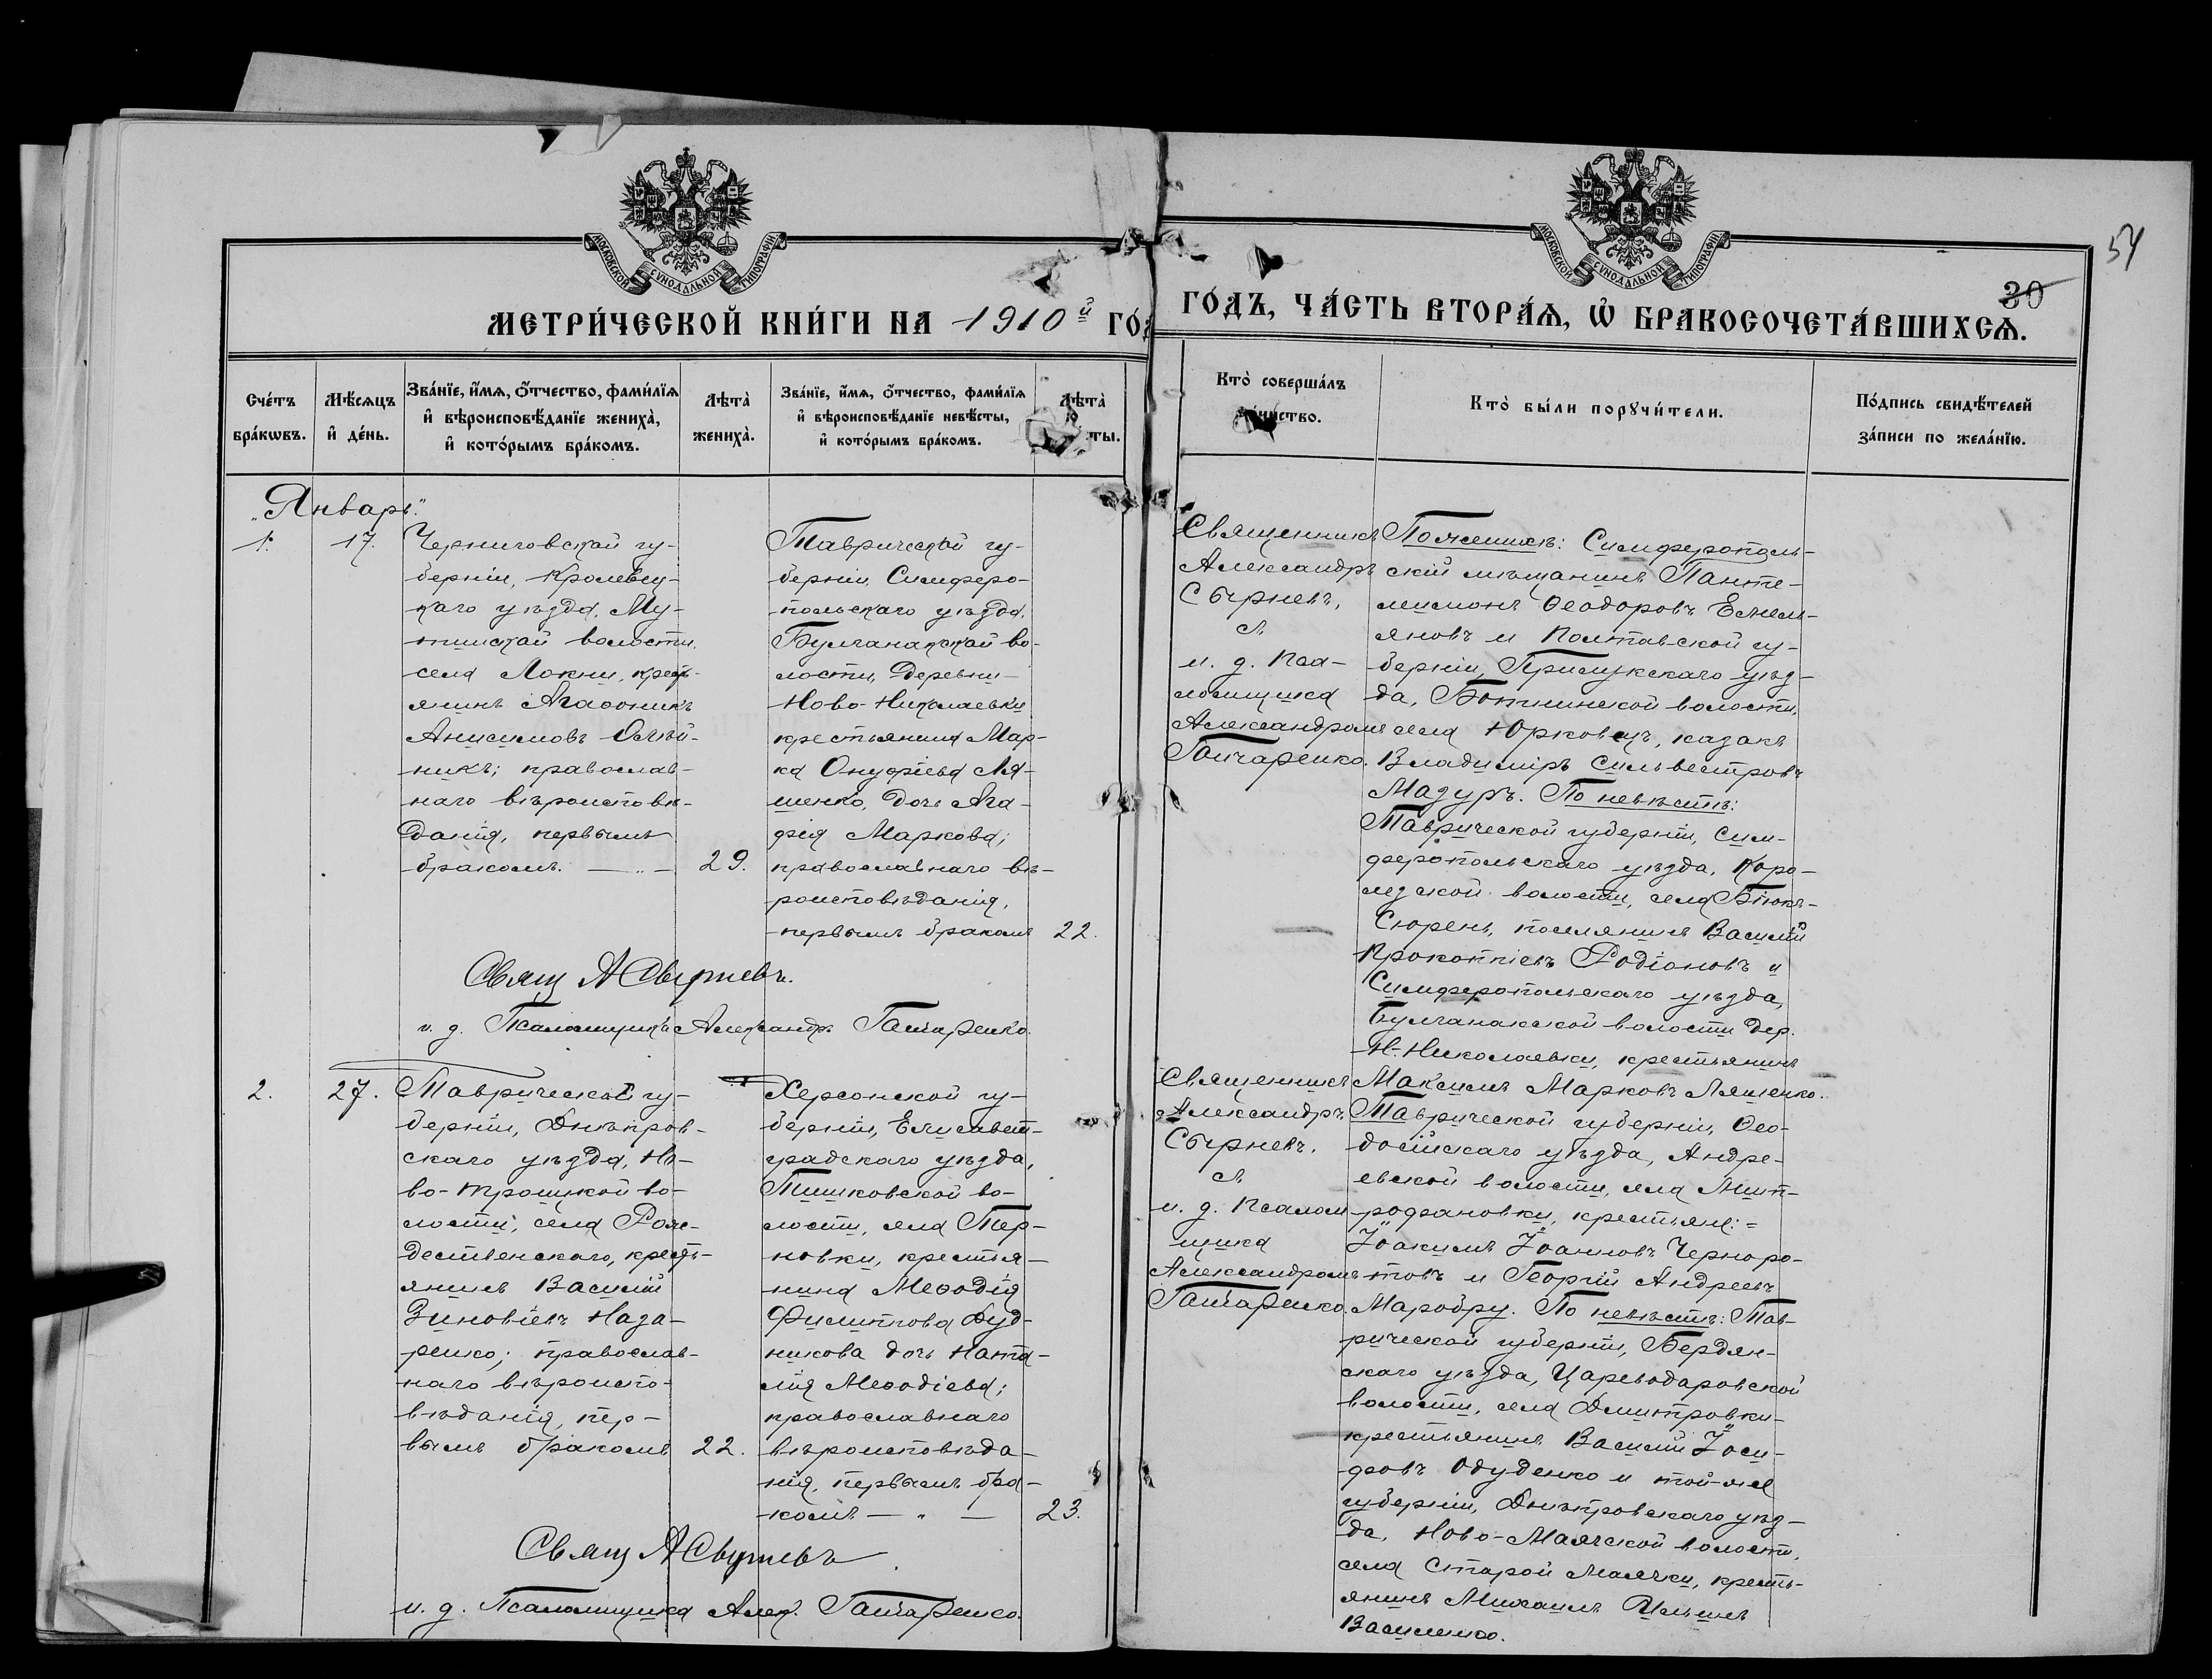 МОСКОВСКОЙ СУНОДАЛЬНОЙ ТИПОГРАФІИ
МЕТРИ́ЧЕСКОЙ КНИ́ГИ НА 1910й ГО́Д
Сче́тъ бра́кѡвъ.
Мѣ́сяцъ и҆ де́нь.
Зва́нїе, и҆́мѧ, ѻ҆́тчество, фами́лїѧ
и҆ вѣроисповѣ́данїе жениха̀,
и҆ кото́рымъ бра́комъ.
Лѣта̀ жениха̀.
Зва́нїе, и҆́мѧ, ѻ҆́тчество, фами́лїѧ
и҆ вѣроисповѣ́данїе невѣ́сты,
и҆ кото́рымъ бра́комъ.
Лѣта̀ ты.
„Январь“
1. 17.
Черниговской гу-
берніи, Кролевец-
каго уѣзда, Му-
тинской волости,
села Локни, кресть-
янинъ Агаѳоникъ
Анисимовъ Олѣй-
никъ; православ-
наго вѣроисповѣ-
данія, первымъ
бракомъ. — „ — 29.
Таврической гу-
берніи, Симферо-
польскаго уѣзда,
Булганакской во-
лости, деревни
Ново-Николаевки
крестьянина Мар-
ка Онуфріева Ля-
шенко, дочь Ага-
фія Маркова;
православнаго вѣ-
роисповѣданія,
первымъ бракомъ 22.
Свящ А Сырневъ.
и. д. Псаломщика Александръ Гончаренко.
2. 27.
Таврической гу-
берніи, Днѣпров-
скаго уѣзда, Но-
во-Троицкой во-
лости, села Рож-
дественскаго, кресть-
янинъ Василій
Зиновіевъ Наза-
ренко; православ-
наго вѣроиспо-
вѣданія, пер-
вымъ бракомъ 22.
Херсонской гу-
берніи, Елисавет-
градскаго уѣзда,
Тишковской во-
лости, села Тер-
новки, крестья-
нина Меѳодія
Филиппова Дуд-
никова дочь Ната-
лія Меѳодіева;
православнаго
вѣроисповѣда-
нія, первымъ бра-
комъ — „ — 23.
Свящ А Сырневъ
и. д. Псаломщика Алек. Гончаренко.
54
30
МОСКОВСКОЙ СУНОДАЛЬНОЙ ТИПОГРАФІИ
ГО́ДЪ, ЧА́СТЬ ВТОРА́Ѧ, Ѡ҆ БРАКОСОЧЕТА́ВШИХСѦ.
Кто̀ соверша́лъ
та́инство.
Кто̀ бы́ли порꙋчи́тели.
По́дпись свидѣ́телей
за́писи по жела́нїю.
Священникъ
Александръ
Сырневъ,
съ
и. д. Пса-
ломщика
Александромъ
Гончаренко.
По женихѣ: Симферополь-
скій мѣщанинъ Панте-
леимонъ Ѳеодоровъ Емель-
яновъ и Полтавской гу-
берніи, Прилукскаго уѣз-
да, Ботинской волости,
села Юрковец, казакъ
Владиміръ Сильвестровъ
Мазуръ. По невѣстѣ:
Таврической губерніи, Сим-
феропольскаго уѣзда, Коро-
лезской волости, села Біюкъ-
Сюрень, поселянинъ Василій
Прокопіевъ Родіоновъ и
Симферопольскаго уѣзда,
Булганакской волости дер.
Н-Николаевки, крестьянинъ
Максимъ Марковъ Ляшенко.
Священникъ
Александръ
Сырневъ,
съ
и. д. Псалом
щика
Александромъ
Гончаренко.
Таврической губерніи, Ѳео-
досійскаго уѣзда, Андре-
евской волости, села Мит-
рофановки, крестьяне:=
Іоакимъ Іоанновъ Черноро-
товъ и Георгій Андреевъ
Маробру. По невѣстѣ: Тав-
рической губерніи, Бердян-
скаго уѣзда, Цареводаровской
волости, села Дмитровки
крестьянинъ Василій Іоси-
фовъ Одуденко и той-же
губерніи, Днѣпровскаго уѣз-
да, Ново-Маячской волости,
села Старой Маячки, кресть-
янинъ Михаилъ Ильинъ
Василенко.